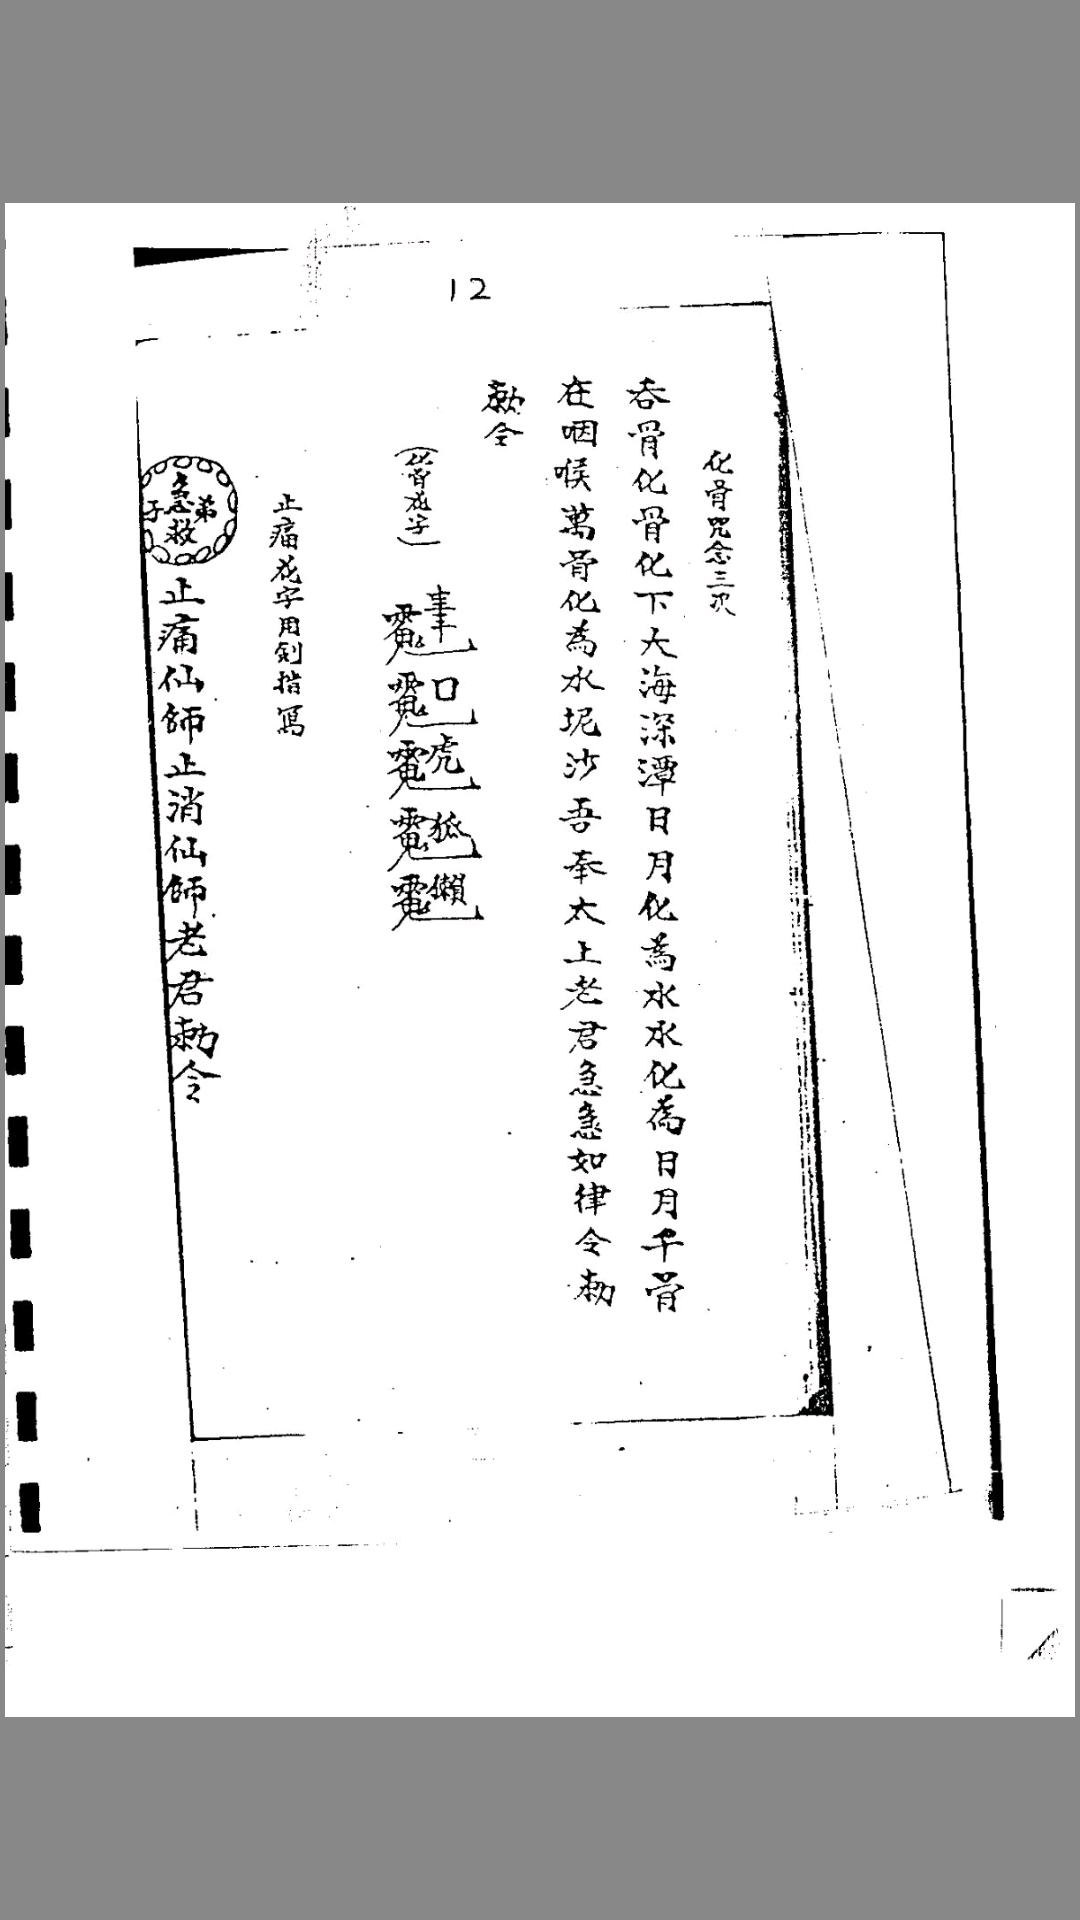 12
化骨咒念三次
吞骨化骨化下大海深潭日月化為水水化為日月千骨
在咽喉萬骨化為水坭沙吾奉太上老君急急如律令勅
勅令
(化骨花字)
口虎狐獺
止痛花字用剑指寫
弟子急救
止痛仙師止消仙師老君勅令